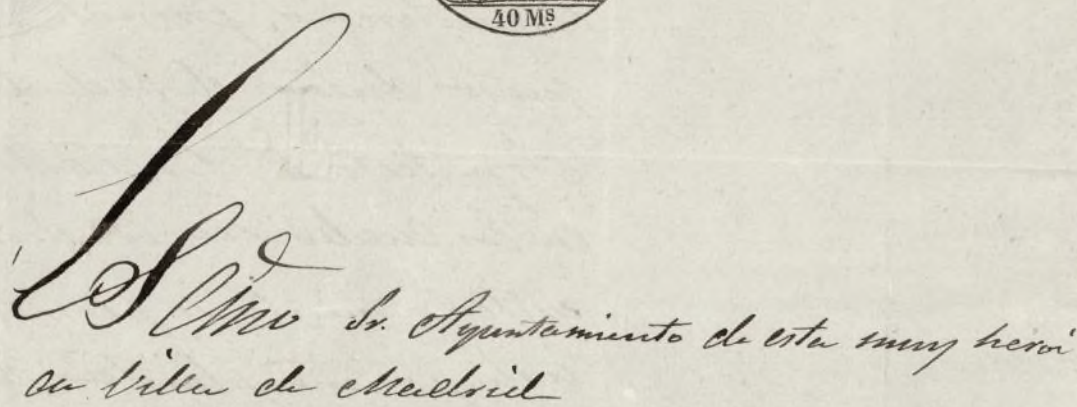 40 Mˢ
Escmo Sr. Ayuntamiento de esta muy heroi
ca Villa de Madrid